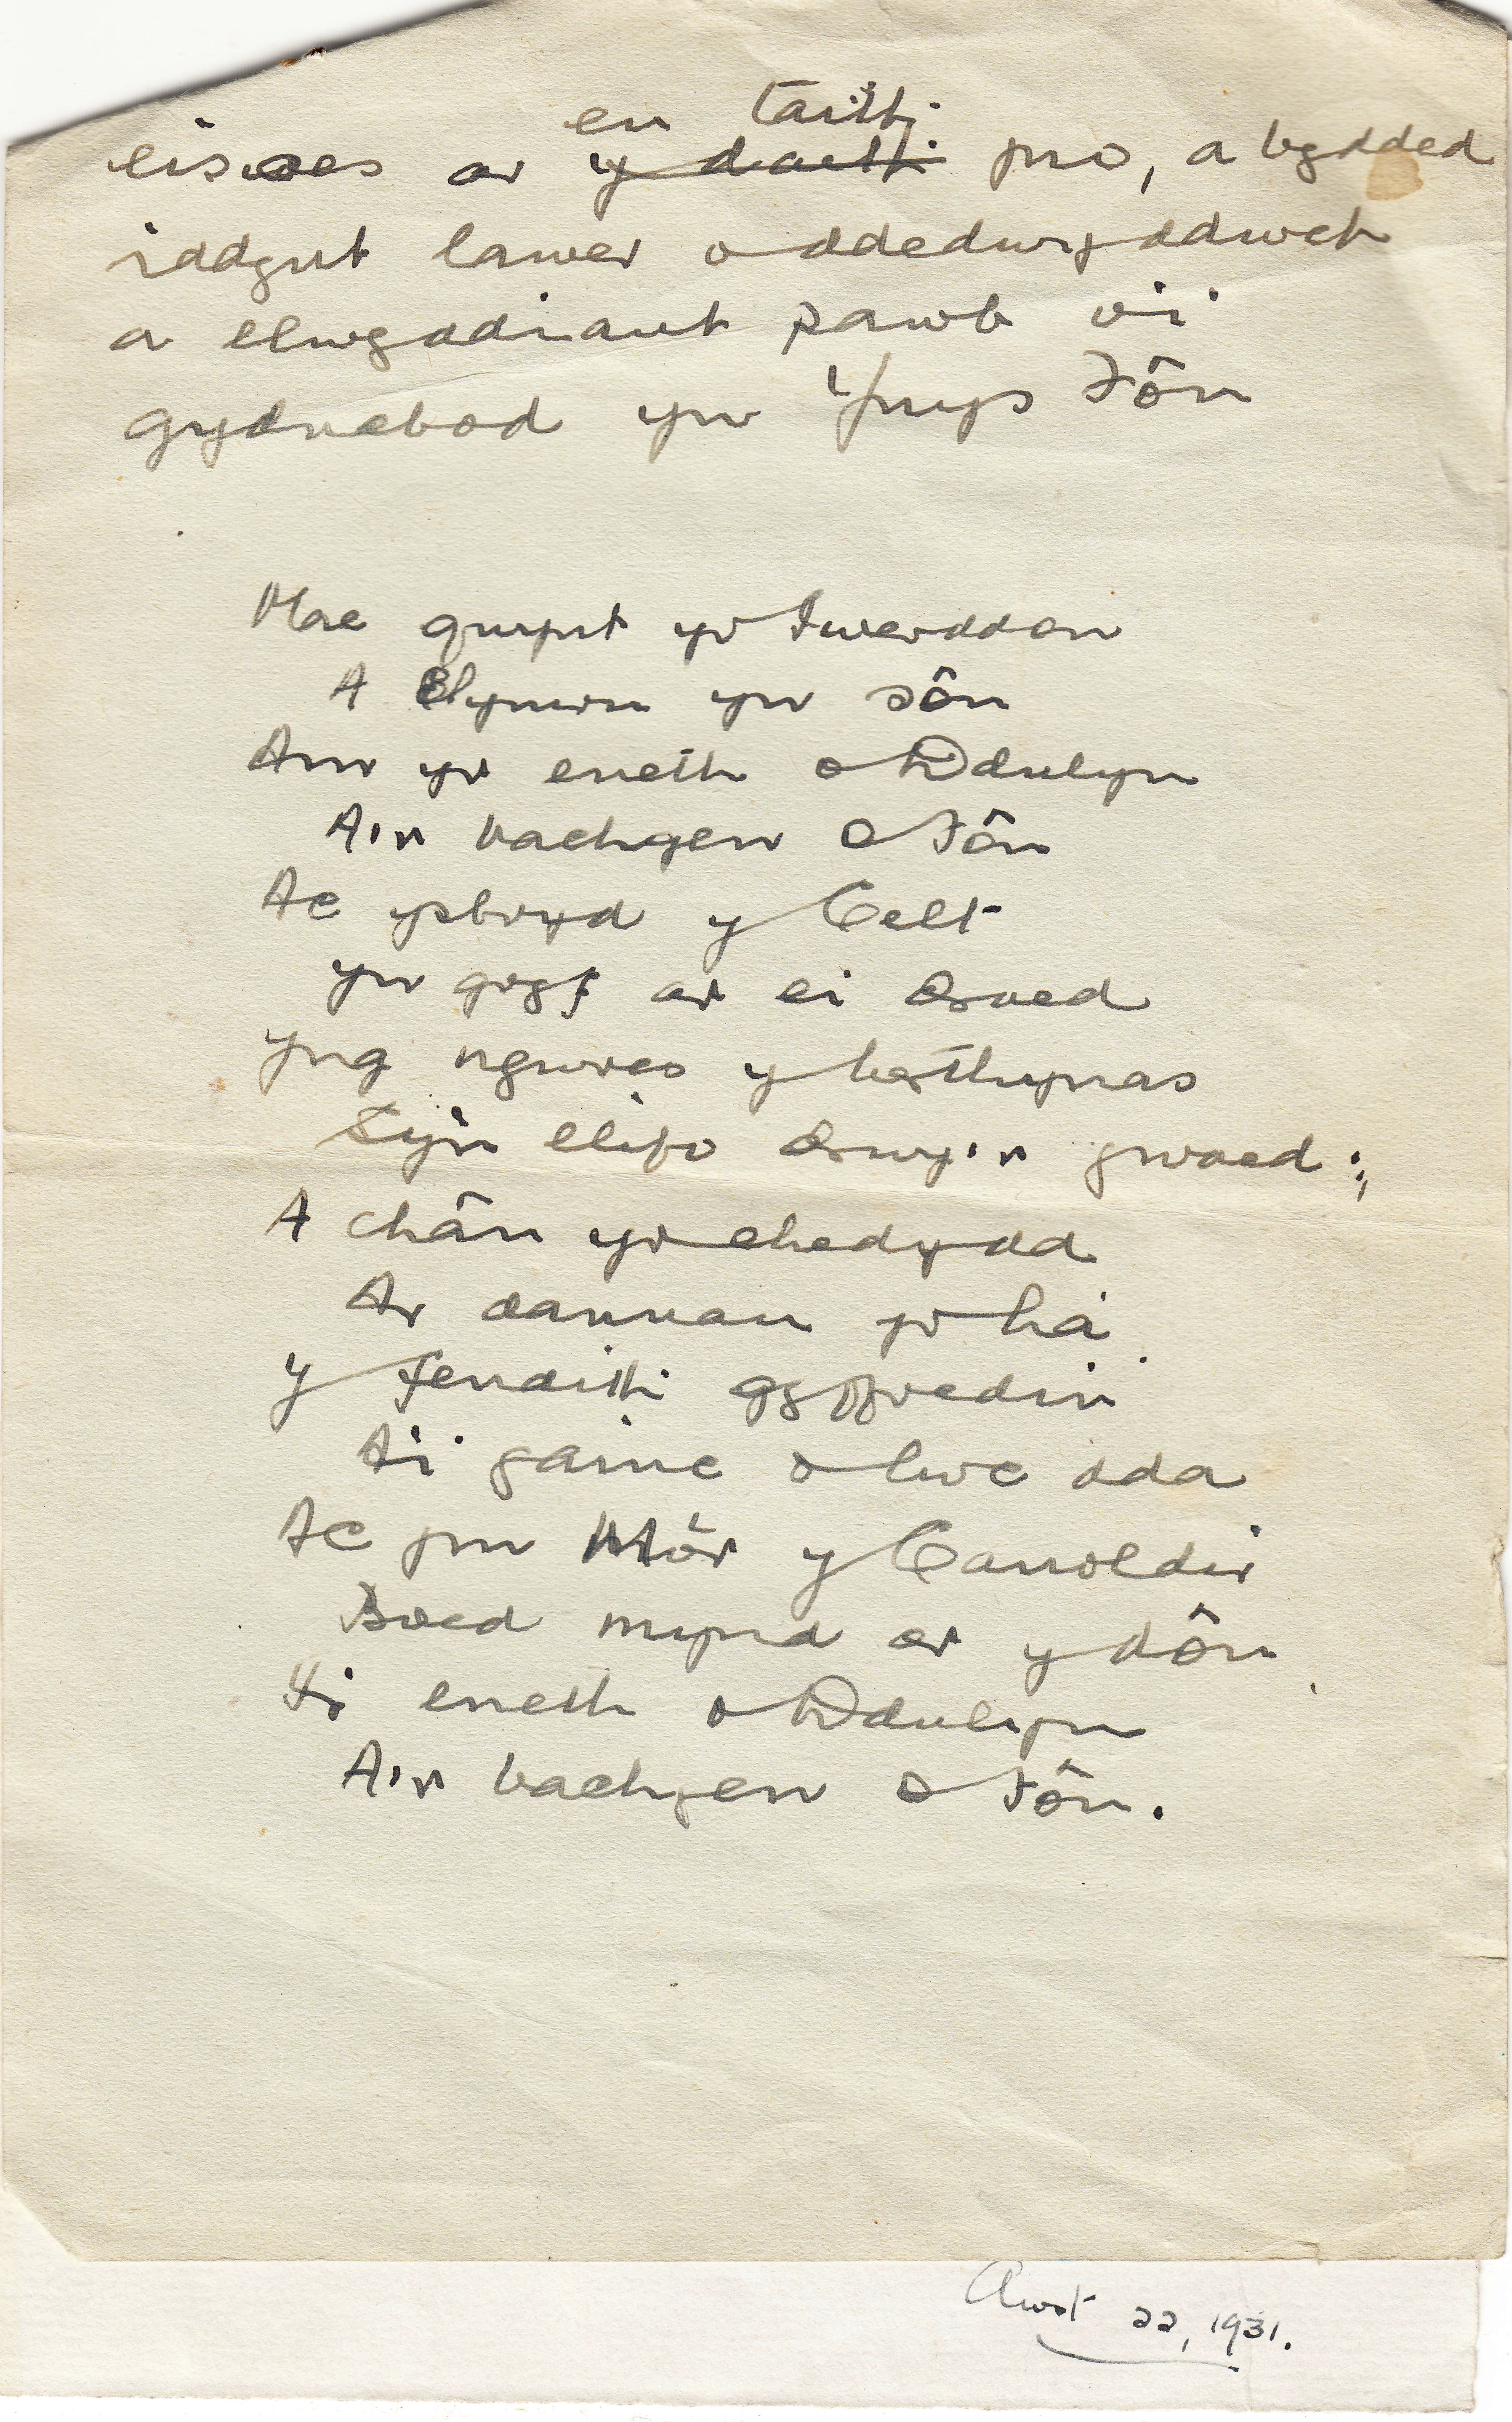 eu taith
eisoes ar y daith yno, a bydded
iddynt lawer o ddedwyddwch
a llwyddiant pawb o'i
gydnabod yn Ynys Fôn
Mae gwynt yr Iwerddon
A Chymru yn sôn
Am yr eneth o Ddulyn
A'r bachgen o Fôn
Ac ysbryd y Celt
yn gryf ar ei droed
Yng ngwres y berthynas
Sy'n llifo drwy'r gwaed;
A chân yr ehedydd
Ar dannau yr ha
Y fendith gyffredin
A'i gainc o lwc dda
Ac yn Môr y Canoldir
Boed mynd ar y dôn
I'r eneth o Ddulyn
A'r bachgen o Fôn.
Awst 22, 1931.